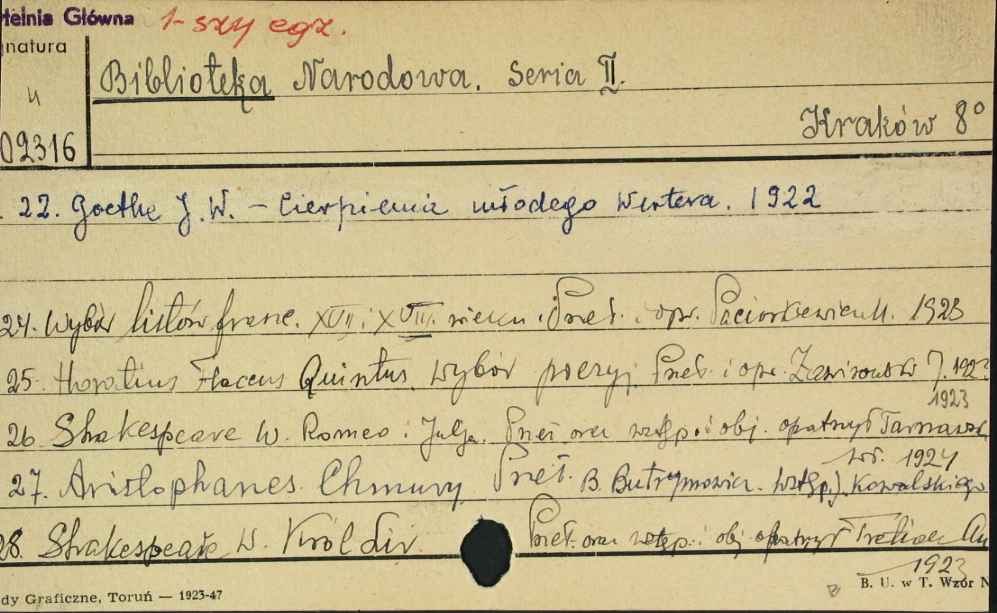 telnia Główna 1-szy egz.
natura
Biblioteka Narodowa. Seria II.
Kraków 8°
02316
22. Goethe J. W. – Cierpienia młodego Wertera. 1922
24. Wybór listów franc. XVII i XVIII. wieku. Przeł. i opr. 1923
25. Horatius Flaccus Quintus. Wybór poezyj. Przeł. i opr. J. 192
1923
26. Shakespeare W. Romeo i Julja. Przeł. oraz wstęp. i obj. opatrzył Tarnawsk
1924
27. Aristophanes Chmury Przeł. B. Butrymowicz. Wstęp. J. Kowalskiego
28. Shakespeare W. Król Lir. Przeł. oraz wstęp. i obj. opatrzył
1923
dy Graficzne, Toruń — 1923-47
B. U. w T. Wzór N